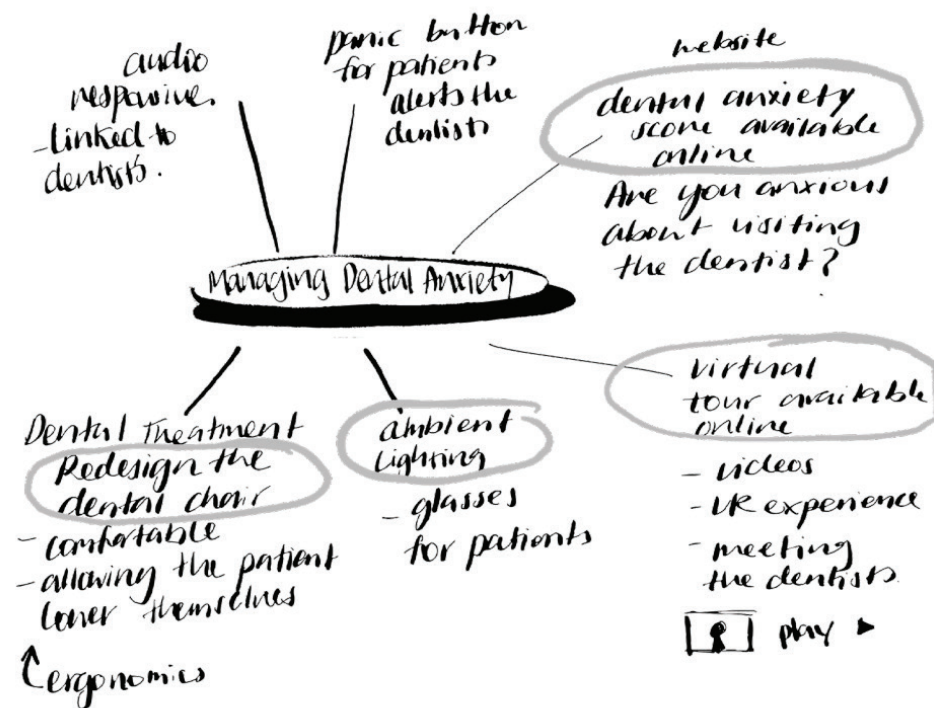 audio
responsive.
- linked to
dentists.
panic button
for patients
alerts the
dentists
website
dental anxiety
score available
online
Are you anxious
about visiting
the dentist?
Managing Dental Anxiety
Dental Treatment
Redesign the
dental chair
- comfortable
- allowing the patient
lower themselves
ergonomics
ambient
lighting
- glasses
for patients
virtual
tour available
online
- videos
- VR experience
- meeting
the dentists
play